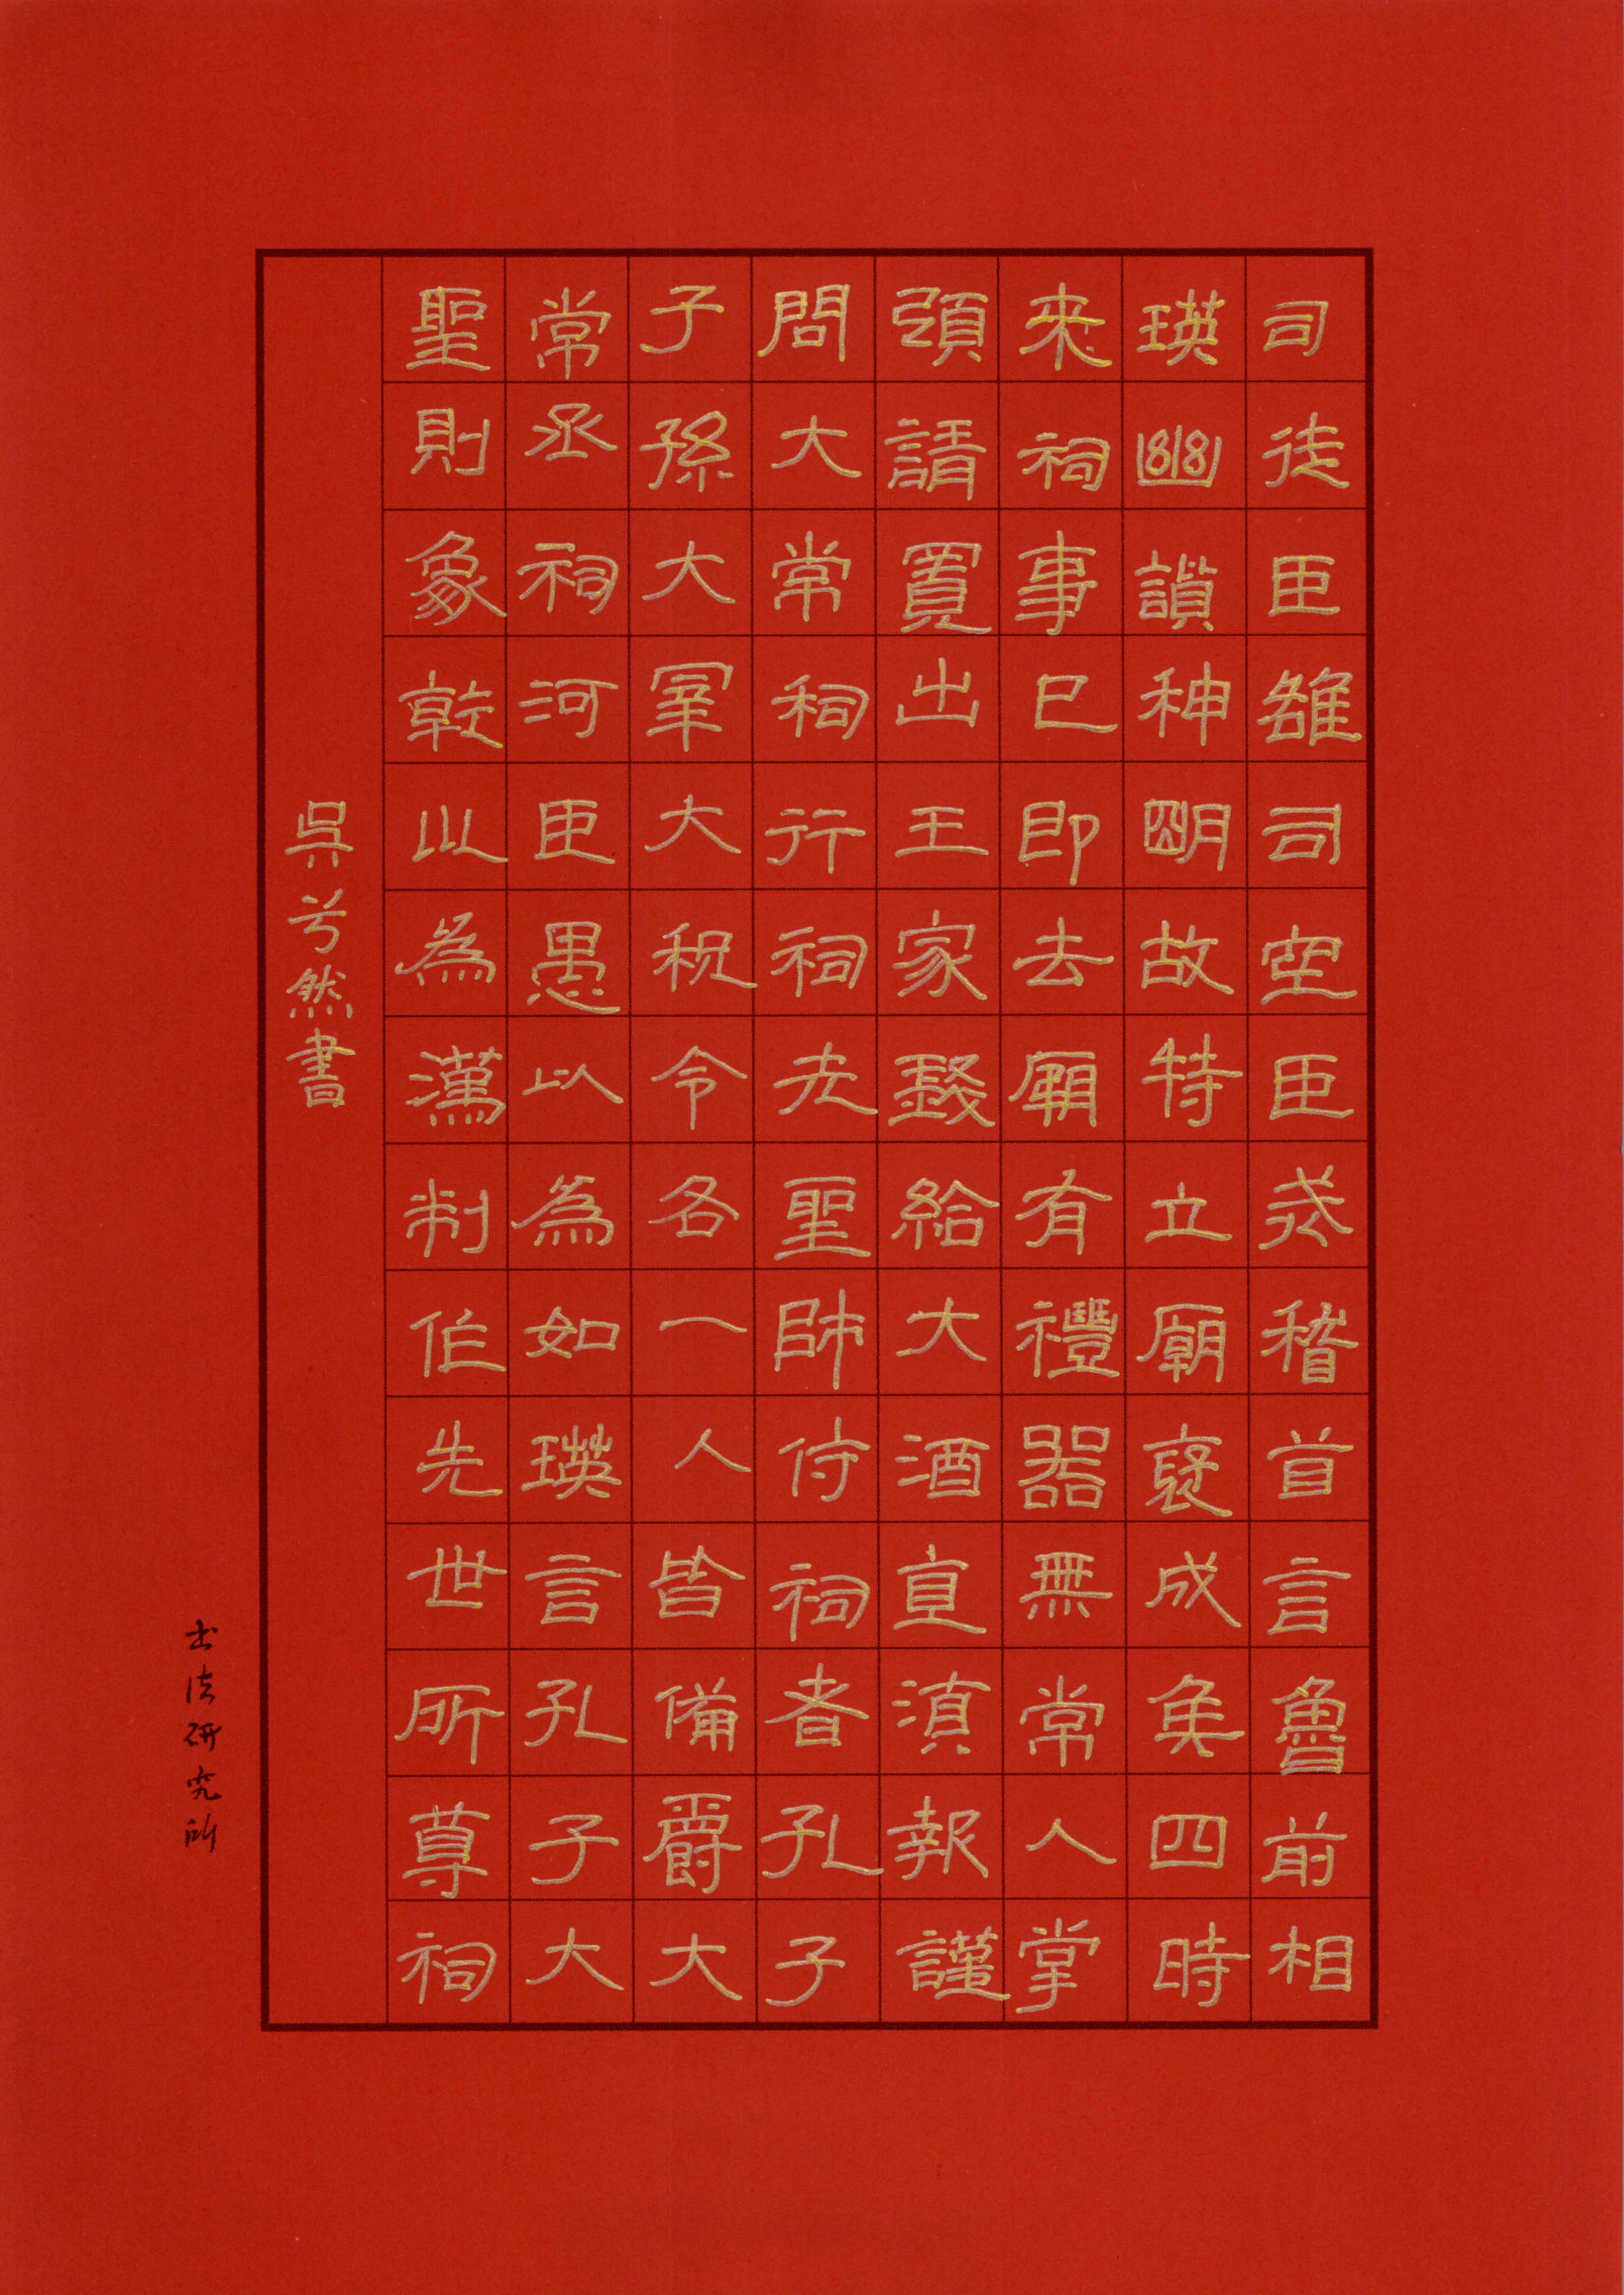 司徒臣雄司空臣戒稽首言魯前相
瑛幽讃神明故特立廟褒成侯四時
来祠事已即去廟有禮器無常人掌
領請置出王家錢給大酒直湏報謹
問大常祠行祠先聖師侍祠者孔子
子孫大宰大祝令各一人皆備爵大
常丞祠河臣愚以為如瑛言孔子大
聖則象乾以為漢制作先世所尊祠
吳兮然書
书法研究所